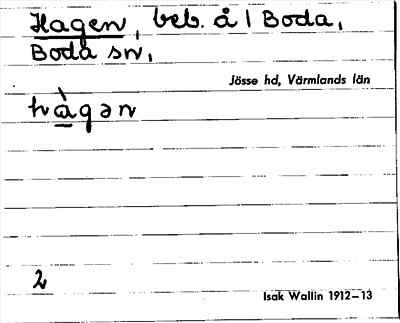 Hagen, beb. å 1 Boda,
Boda sn,
Jösse hd, Värmlands län
hàgən
2
Isak Wallin 1912–13